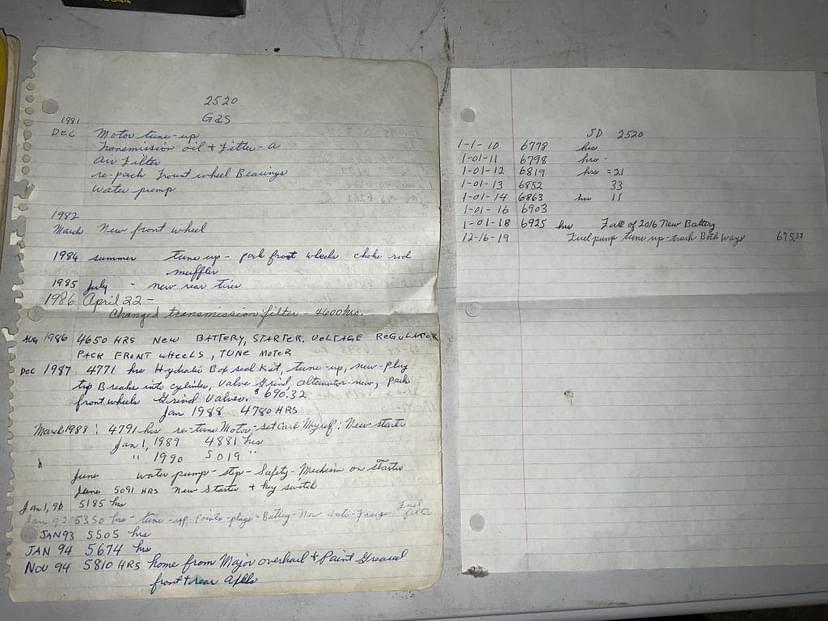 2520
GaS
1981
Dec Motor tune-up
Transmission oil & Filter - a
Air Filter
re-pack Front wheel Bearings
Water pump
1982
March New front wheel
1984 summer tune up - pack front wheels choke rod
muffler
1985 July - new rear tires
1986 April 22 -
Changed transmission filter - 4600 hrs.
Aug 1986 4650 HRS NEW BATTERY, STARTER, VOLTAGE REGULATOR
PACK FRONT WHEELS, TUNE MOTOR
Dec 1987 4771 hrs Hydralic seal Kit, tune-up, new-plug
tip Broke into cylinder, Valve Grind, alternator new, pack
front wheels Grind Valves. $690.32
Jan 1988 4780 HRS
March 1988: 4791-hrs re-tune Motor - set Carb Myself: New starter
Jan 1, 1989 4881 hrs
" 1990 5019 "
June water pump - - Safety - on starter
June 5091 HRS New Starter & Key switch
Jan 1, 5185 hrs
Jan 5350 hrs - tune-up - Points - plugs - Battery - New Fuel
Filter
JAN 93 5505 hrs
JAN 94 5674 hrs
Nov 94 5810 HRS home from Major overhaul & Paint Greased
front & rear
JD 2520
1-1-10 6778 hrs
1-01-11 6798 hrs -
1-01-12 6819 hrs = 21
1-01-13 6852 33
1-01-14 6863 hrs 11
1-01-16 6903
1-01-18 6925 hrs Fall of 2016 New Battery
12-16-19 Fuel pump tune up - truck Both Ways 675.